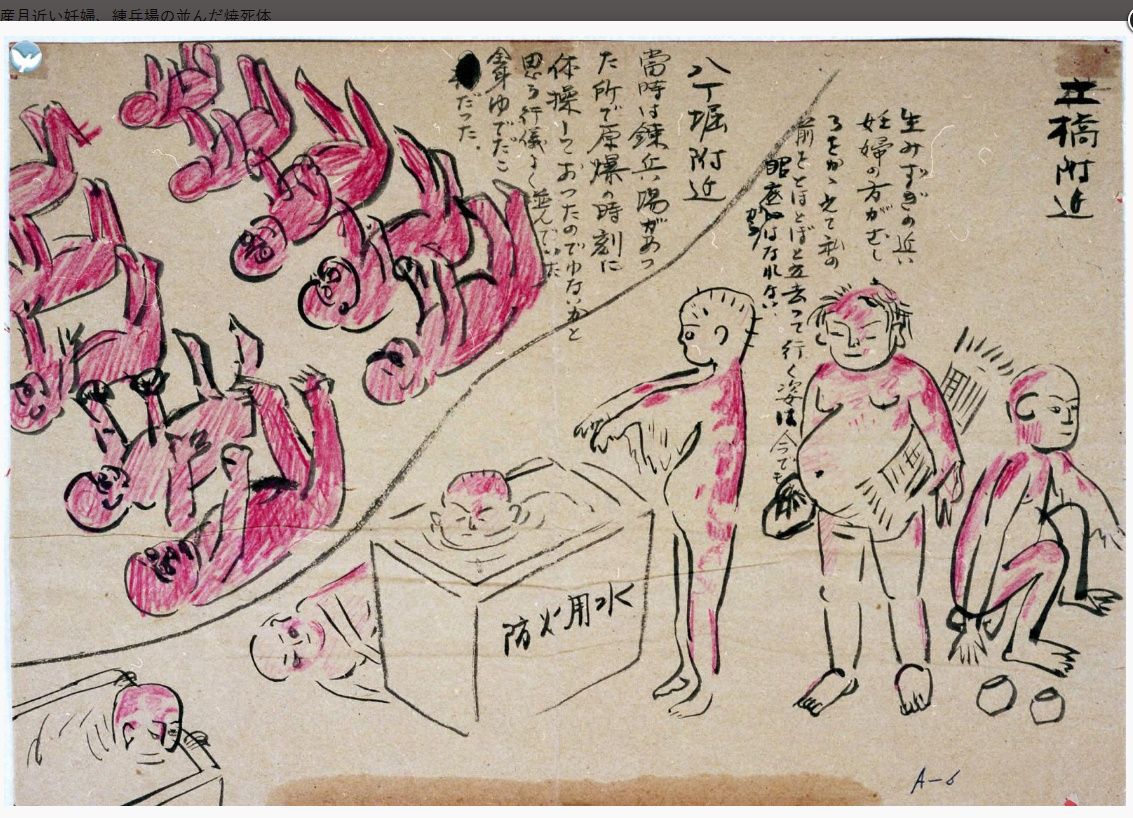 産月近い妊婦、練兵場の並んだ焼死体
橋附近
生みずきの近い
妊婦の方がむし
ろをかゝえて私の
前をとぼとぼと立去って行く姿は今でも
眼底からはなれない
八丁堀附近
當時は錬兵場があつ
た所で原爆の時刻に
体操しておつたのでゆないかと
思う行儀よく並んでいた
ゆでだこ
だった.
防火用水
A-6